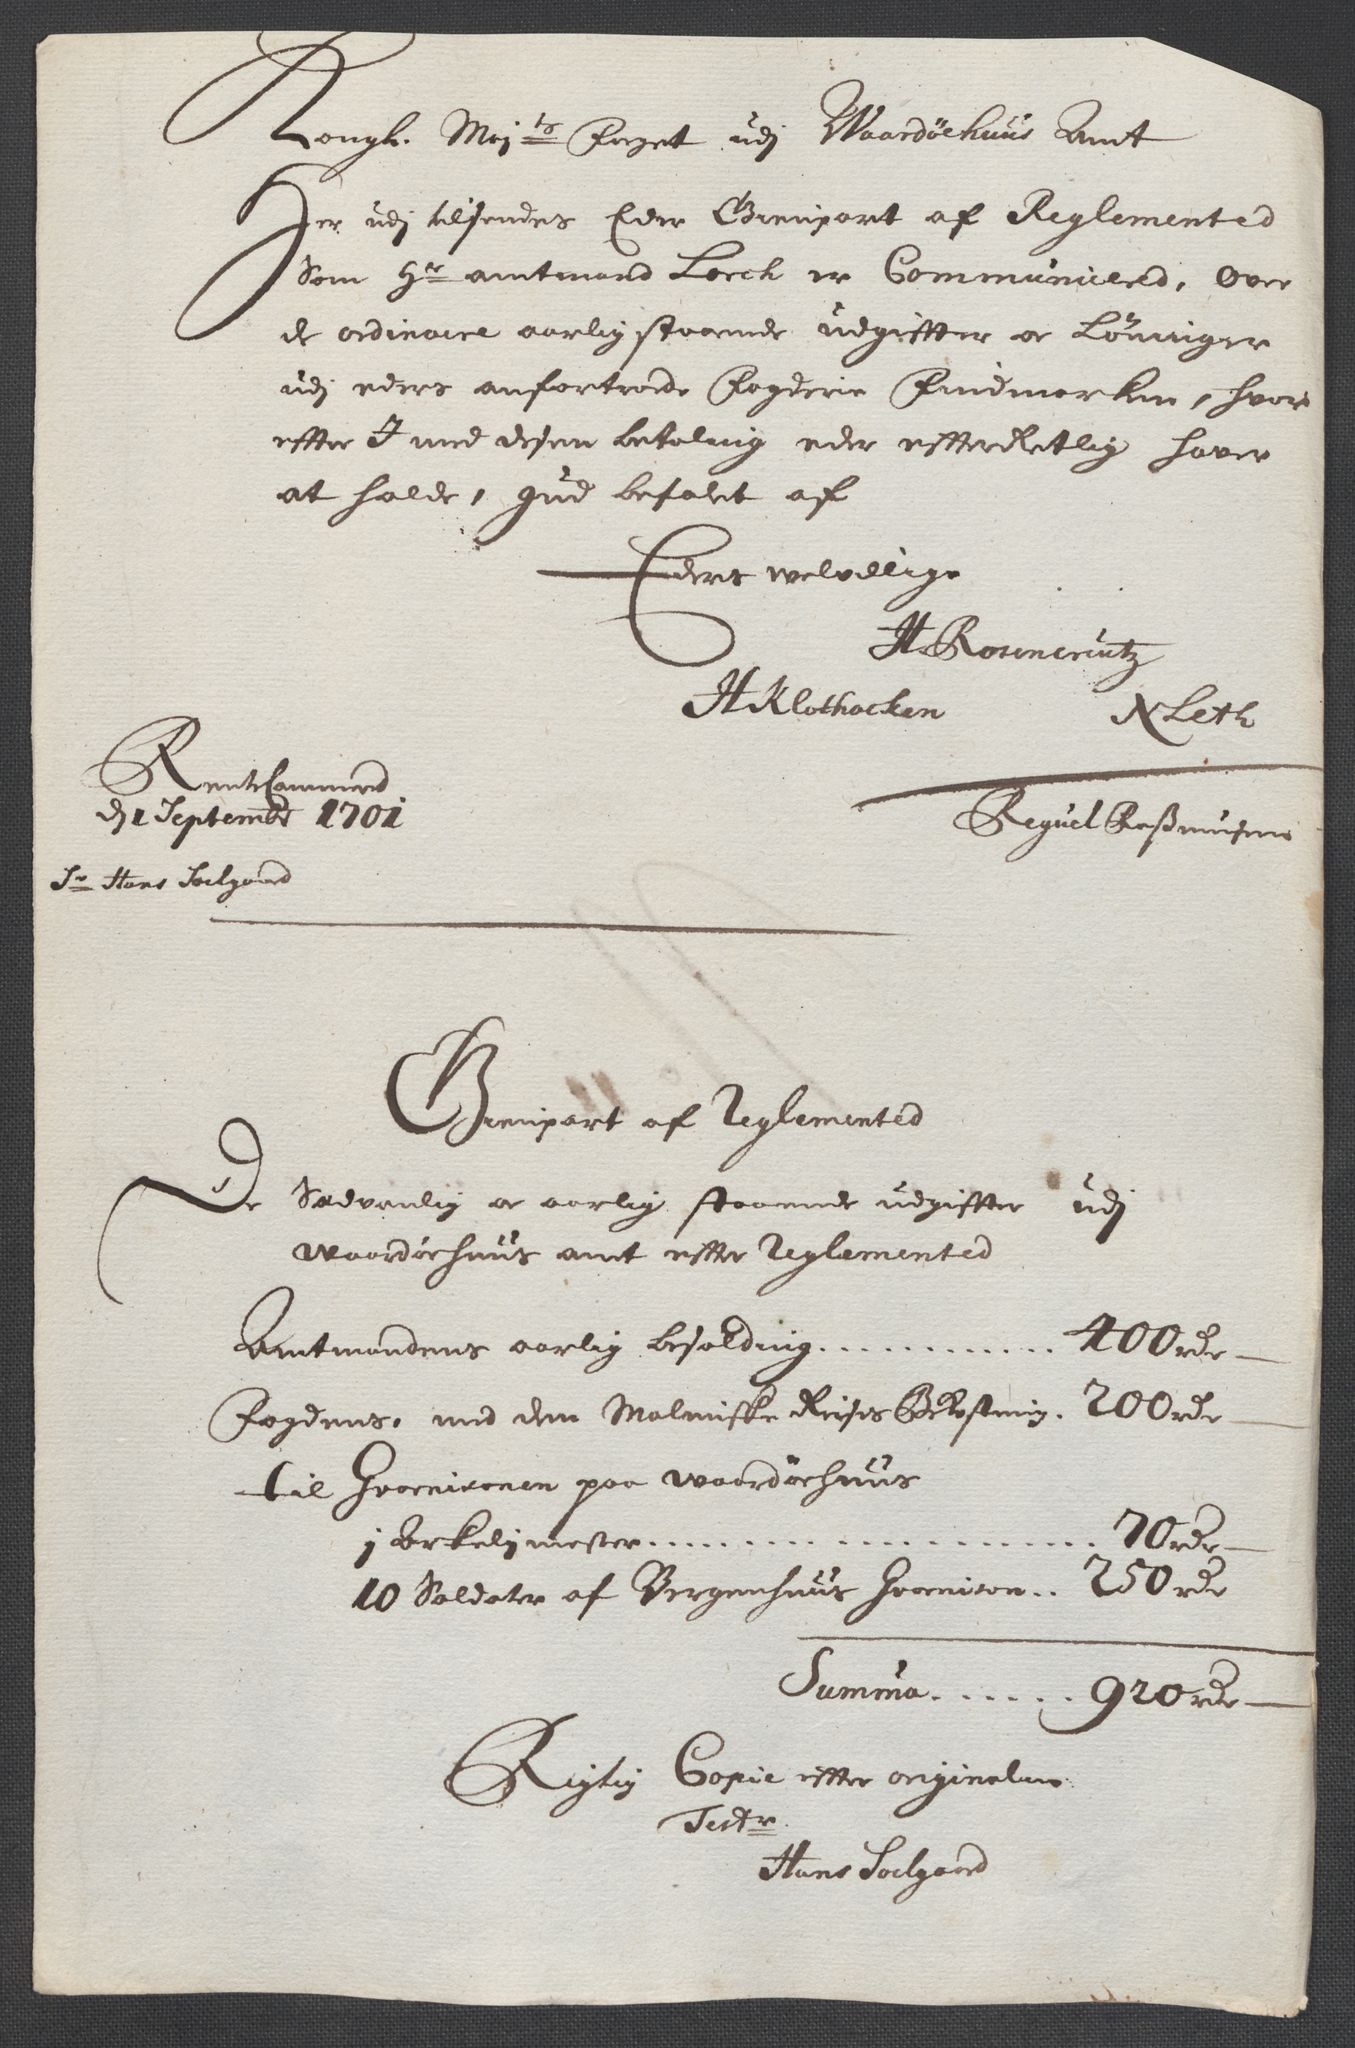 Kongh. Maj:ts Foget udj Waardöehuus Amt
Her udj tilsendes Eder Gienpart af Reglemented
Som Hr amtmand Lorck er Communicerd, over
de ordinaire aarlig staaende udgiffter oc Lönninger
udj eders anfortroede Fogderie Findmarken, hvor
effter I med desen betaling eder effterRetlig haver
at holde, Gud befalet af
Eders welvillige
H Rosencreutz
H Klothacken N Leth
RenteCammered
d. 1 September 1701
Reguel Raßmusen
Sr Hans Soelgaard
Gienpart af Reglemented
De Sædvanlig oc aarlig staaende udgiffter udj
waardöehuus amt effter Reglemented
Amtmandens aarlig besolding............ 400 rdr
Fogdens, med den Malmiske Reises Bekostning. 200 rdr
til Guarnisonen paa waardöehuus
1 Arkelijmester........................ 70 rdr
10 Soldater af Bergenhuus Guarnison.. 250 rdr
Summa....... 920 rdr
Rigtig Copie effter originalen
Test:r
Hans Soelgaard